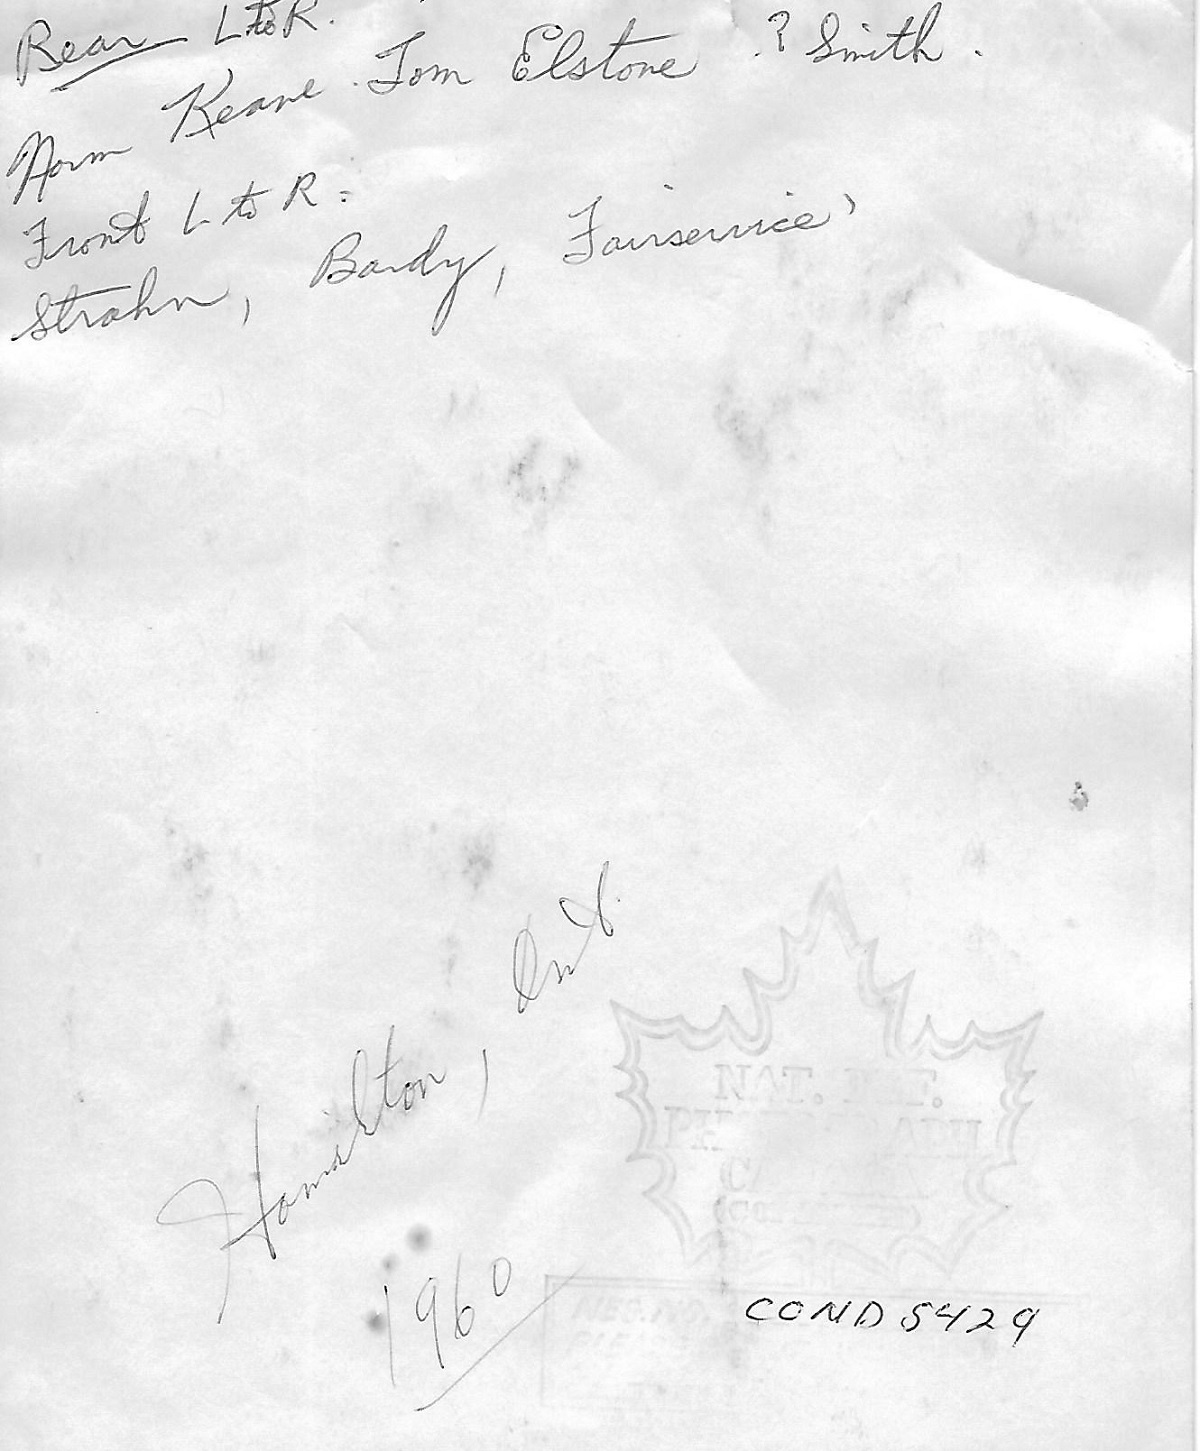 Rear L to R.
Norm Keane. Tom Elstone ? Smith.
Front L to R:
Strahn, Bardy, Fairservice
Hamilton, Ont.
1960
NAT.
COND 5429